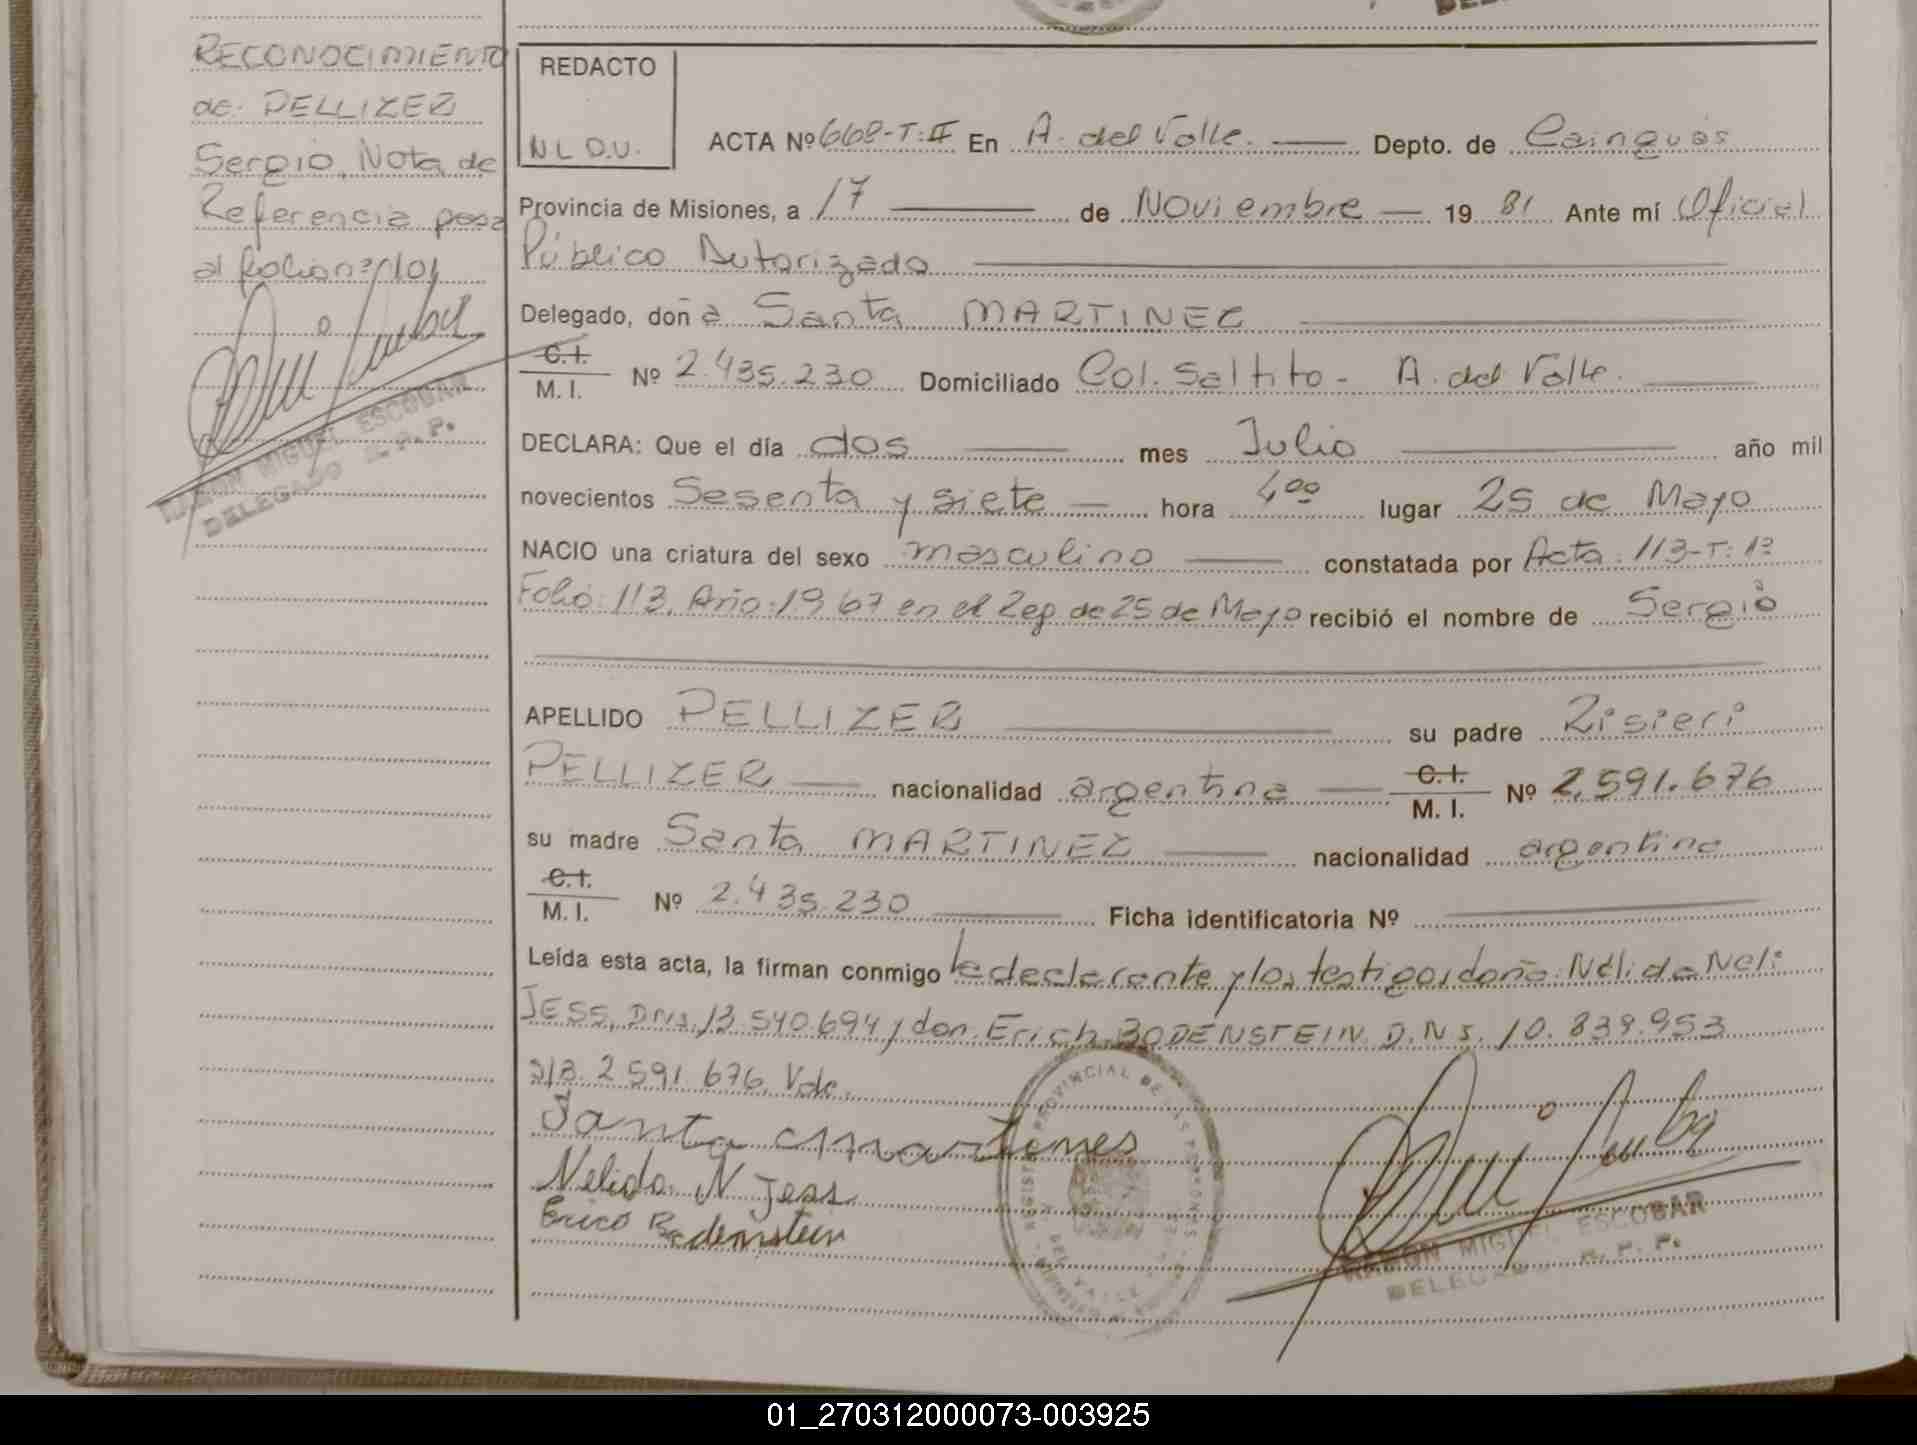 RECONOCIMIENTO
de PELLIZER
Sergio, Nota de
Referencia pasa
al folio nº 101
RAMON MIGUEL ESCOBAR
DELEGADO R. P. P.
REDACTO
N L D.U.
ACTA Nº 668-T:II En A. del Valle. Depto. de Cainguás
Provincia de Misiones, a 17 de Noviembre 19 81 Ante mí Oficial
Público Autorizado
Delegado, doña Santa MARTINEZ
C.I. M. I. Nº 2.435.230 Domiciliado Col. Saltito - A. del Valle.
DECLARA: Que el día dos mes Julio año mil
novecientos Sesenta y siete hora 4,00 lugar 25 de Mayo
NACIO una criatura del sexo masculino constatada por Acta: 113-T: 1º
Folio: 113, Año: 1967 en el Reg de 25 de Mayo recibió el nombre de Sergio
APELLIDO PELLIZER su padre Risieri
PELLIZER nacionalidad argentina C.I. M. I. Nº 2.591.676
su madre Santa MARTINEZ nacionalidad argentina
C.I. M. I. Nº 2.435.230 Ficha identificatoria Nº
Leída esta acta, la firman conmigo la declarante y los testigos doña: Nélida Neli
JESS, DNI. 13.540.694 y don. Erich BODENSTEIN. D.N.I. 10.839.953
S/B. 2.591.676. Vale.
Santa Martines
Nelida N Jess
Erico Bodenstein
REGISTRO PROVINCIAL DE LAS PERSONAS
DEL VALLE
RAMON MIGUEL ESCOBAR
DELEGADO R. P. P.
01_270312000073-003925